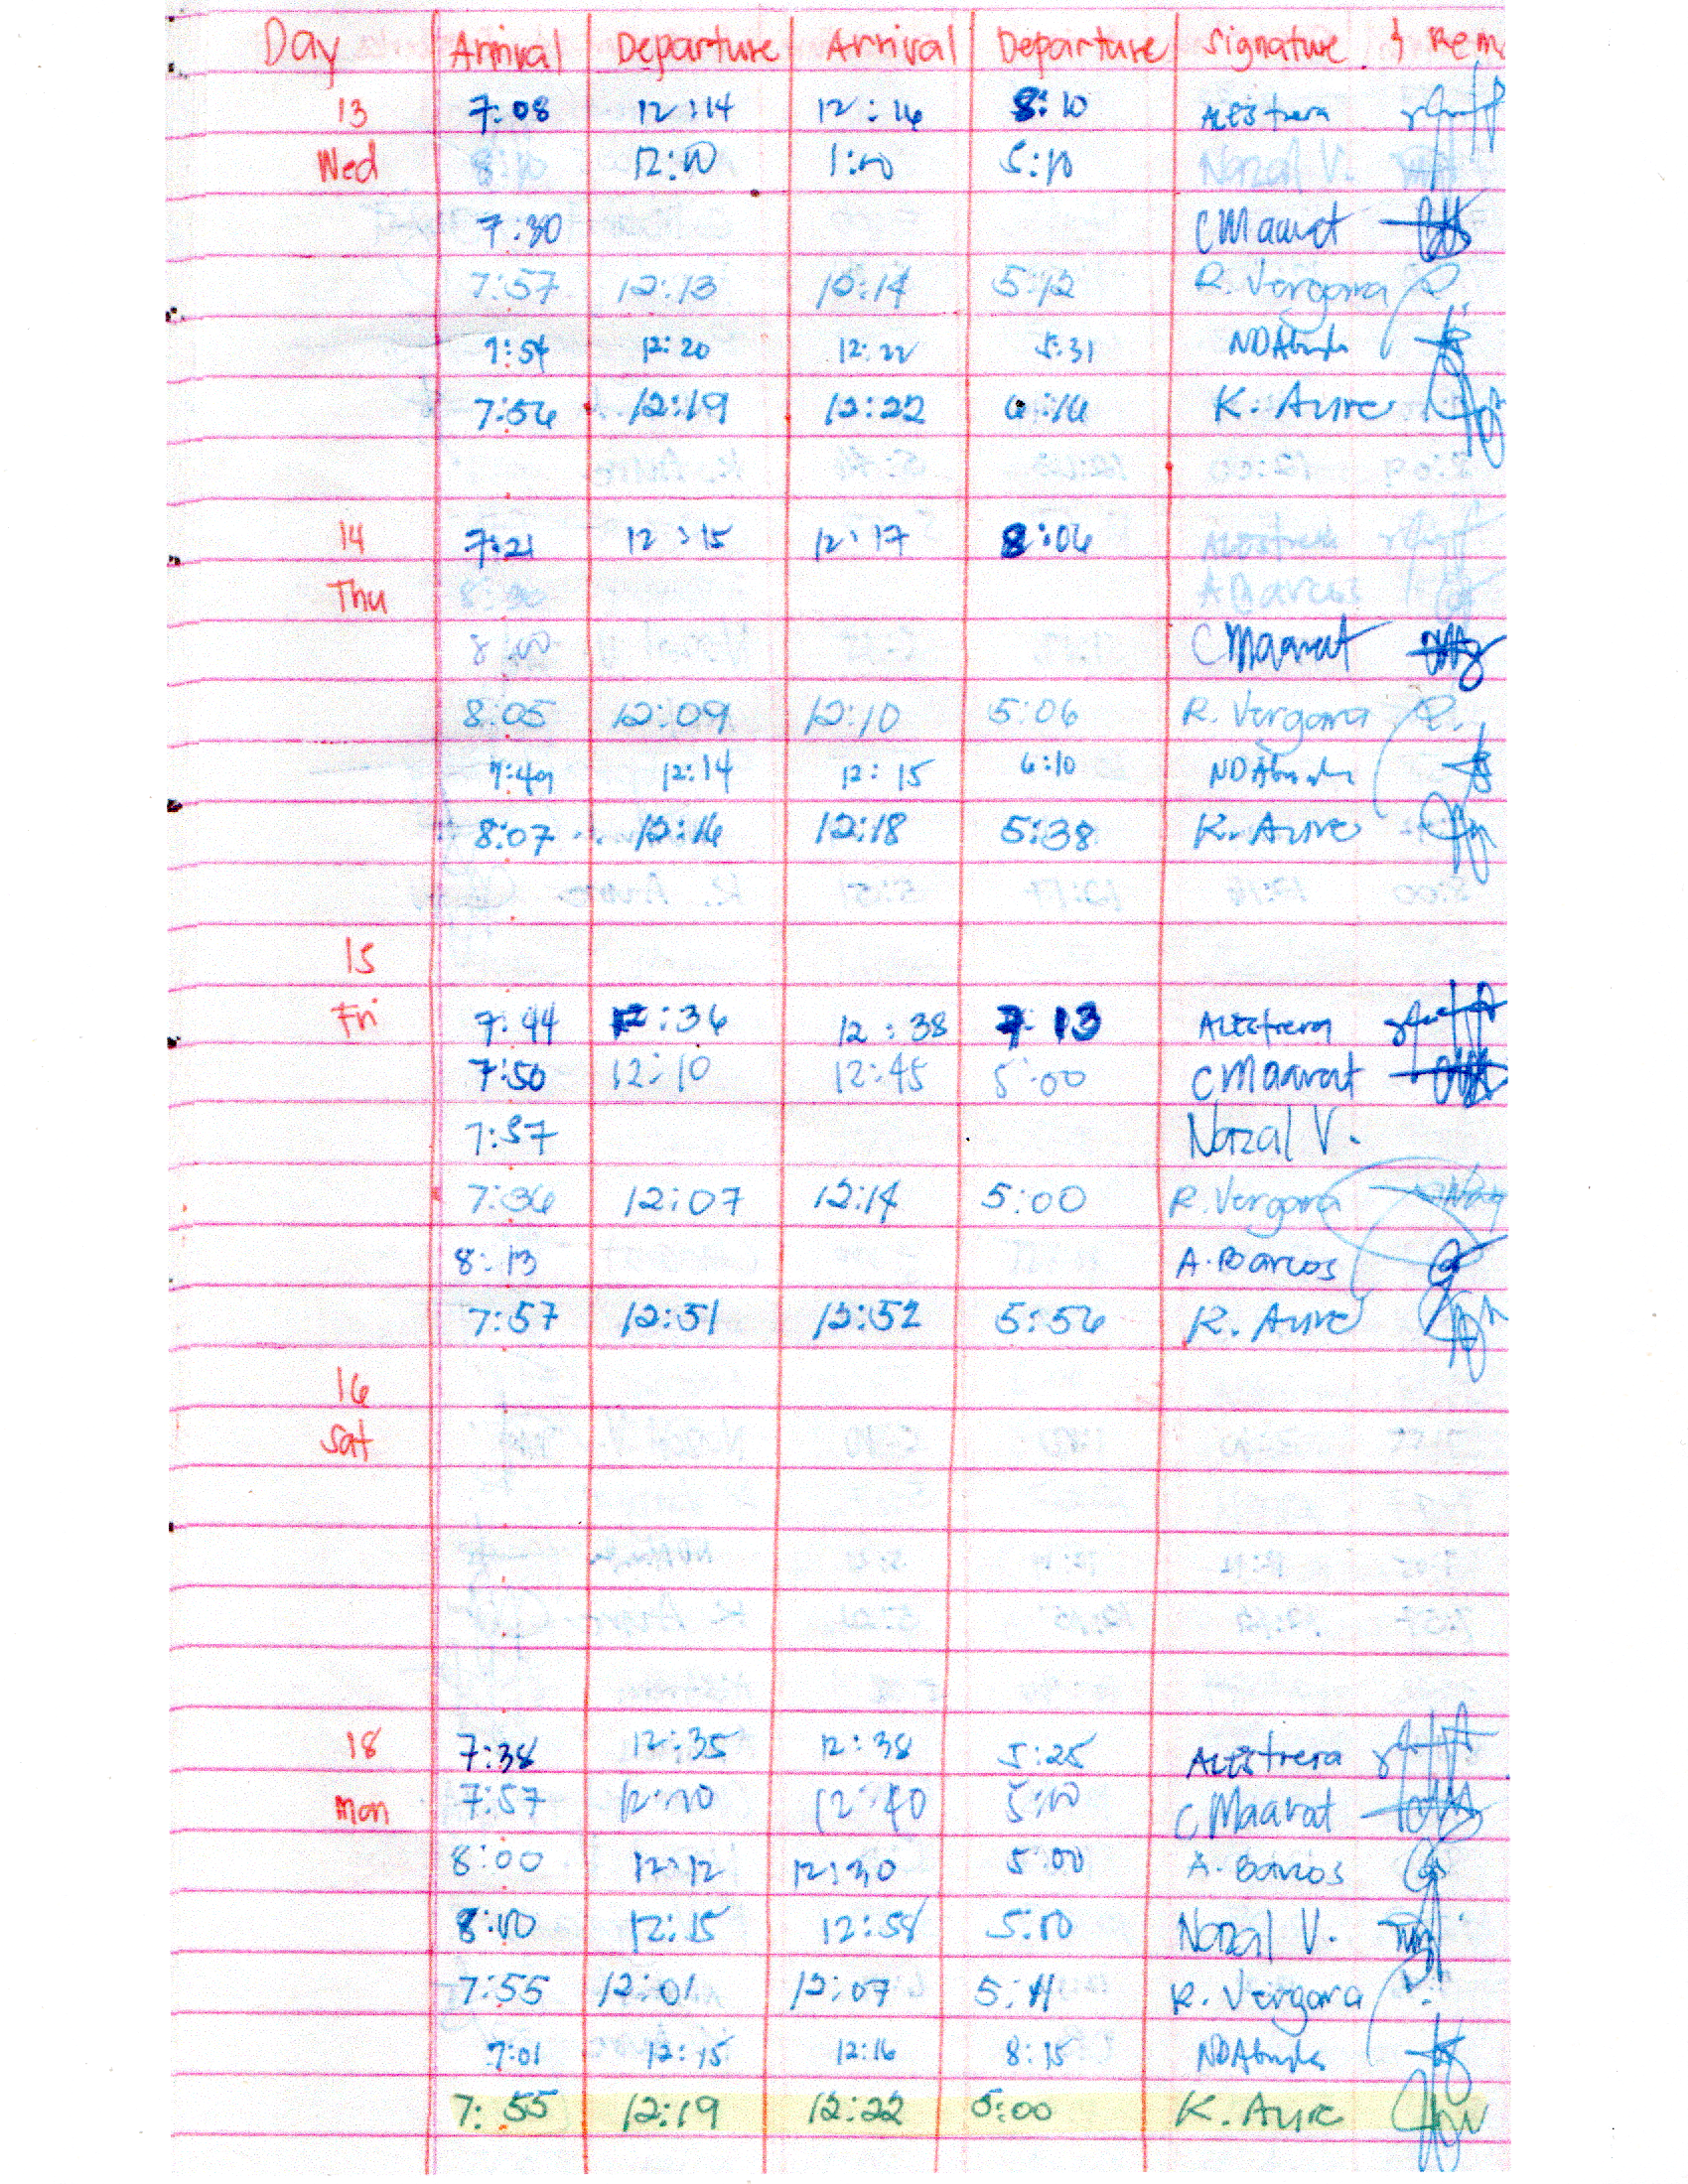 Day Arrival Departure Arrival Departure Signature & Rem
13 7:08 12:14 12:16 8:10 ALEstrera
Wed 8:10 12:10 1:00 5:10 Nazal V.
7:30 C Maarat
7:57 12:13 12:14 5:12 R. Vergara
7:54 12:20 12:22 5:31
7:56 12:19 12:22 6:16 K. Aure
14 7:21 12:15 12:17 8:06 ALEstrera
Thu 8:00 A Barcos
8:00 C Maarat
8:05 12:09 12:10 5:06 R. Vergara
7:49 12:14 12:15 6:10
8:07 12:16 12:18 5:38 K. Aure
15
Fri 7:44 12:36 12:38 7:13 ALEstrera
7:50 12:10 12:45 5:00 C Maarat
7:57 Nazal V.
7:36 12:07 12:14 5:00 R. Vergara
8:13 A. Barcos
7:57 12:51 12:52 5:56 K. Aure
16
Sat
18 7:38 12:35 12:38 5:25 ALEstrera
Mon 7:57 12:10 12:40 5:00 C Maarat
8:00 12:12 12:30 5:00 A. Barcos
8:00 12:15 12:58 5:00 Nazal V.
7:55 12:01 12:07 5:11 R. Vergara
7:01 12:15 12:16 8:15
7:55 12:19 12:22 5:00 K. Aure